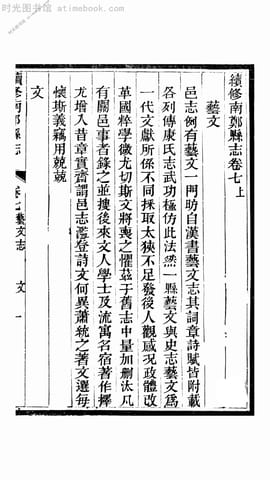 时光图书馆
續修南鄭縣志卷七上
藝文
邑志例有藝文一門昉自漢書藝文志其詞章詩賦皆附載
各列傳康氏志武功極仿此法然一縣藝文與史志藝文爲
一代文獻所係不同採取太狹不足發後人觀感况政體改
革國粹學微尤切斯文將喪之懼茲于舊志中量加刪汰凡
有關邑事者錄之並摟後來文人學士及流寓名宿著作擇
尤增入昔章實齋謂邑志濫登詩文何異蕭統之著文選每
懷斯義竊用兢兢
文
續修南鄭縣志
卷七藝文志
文
一